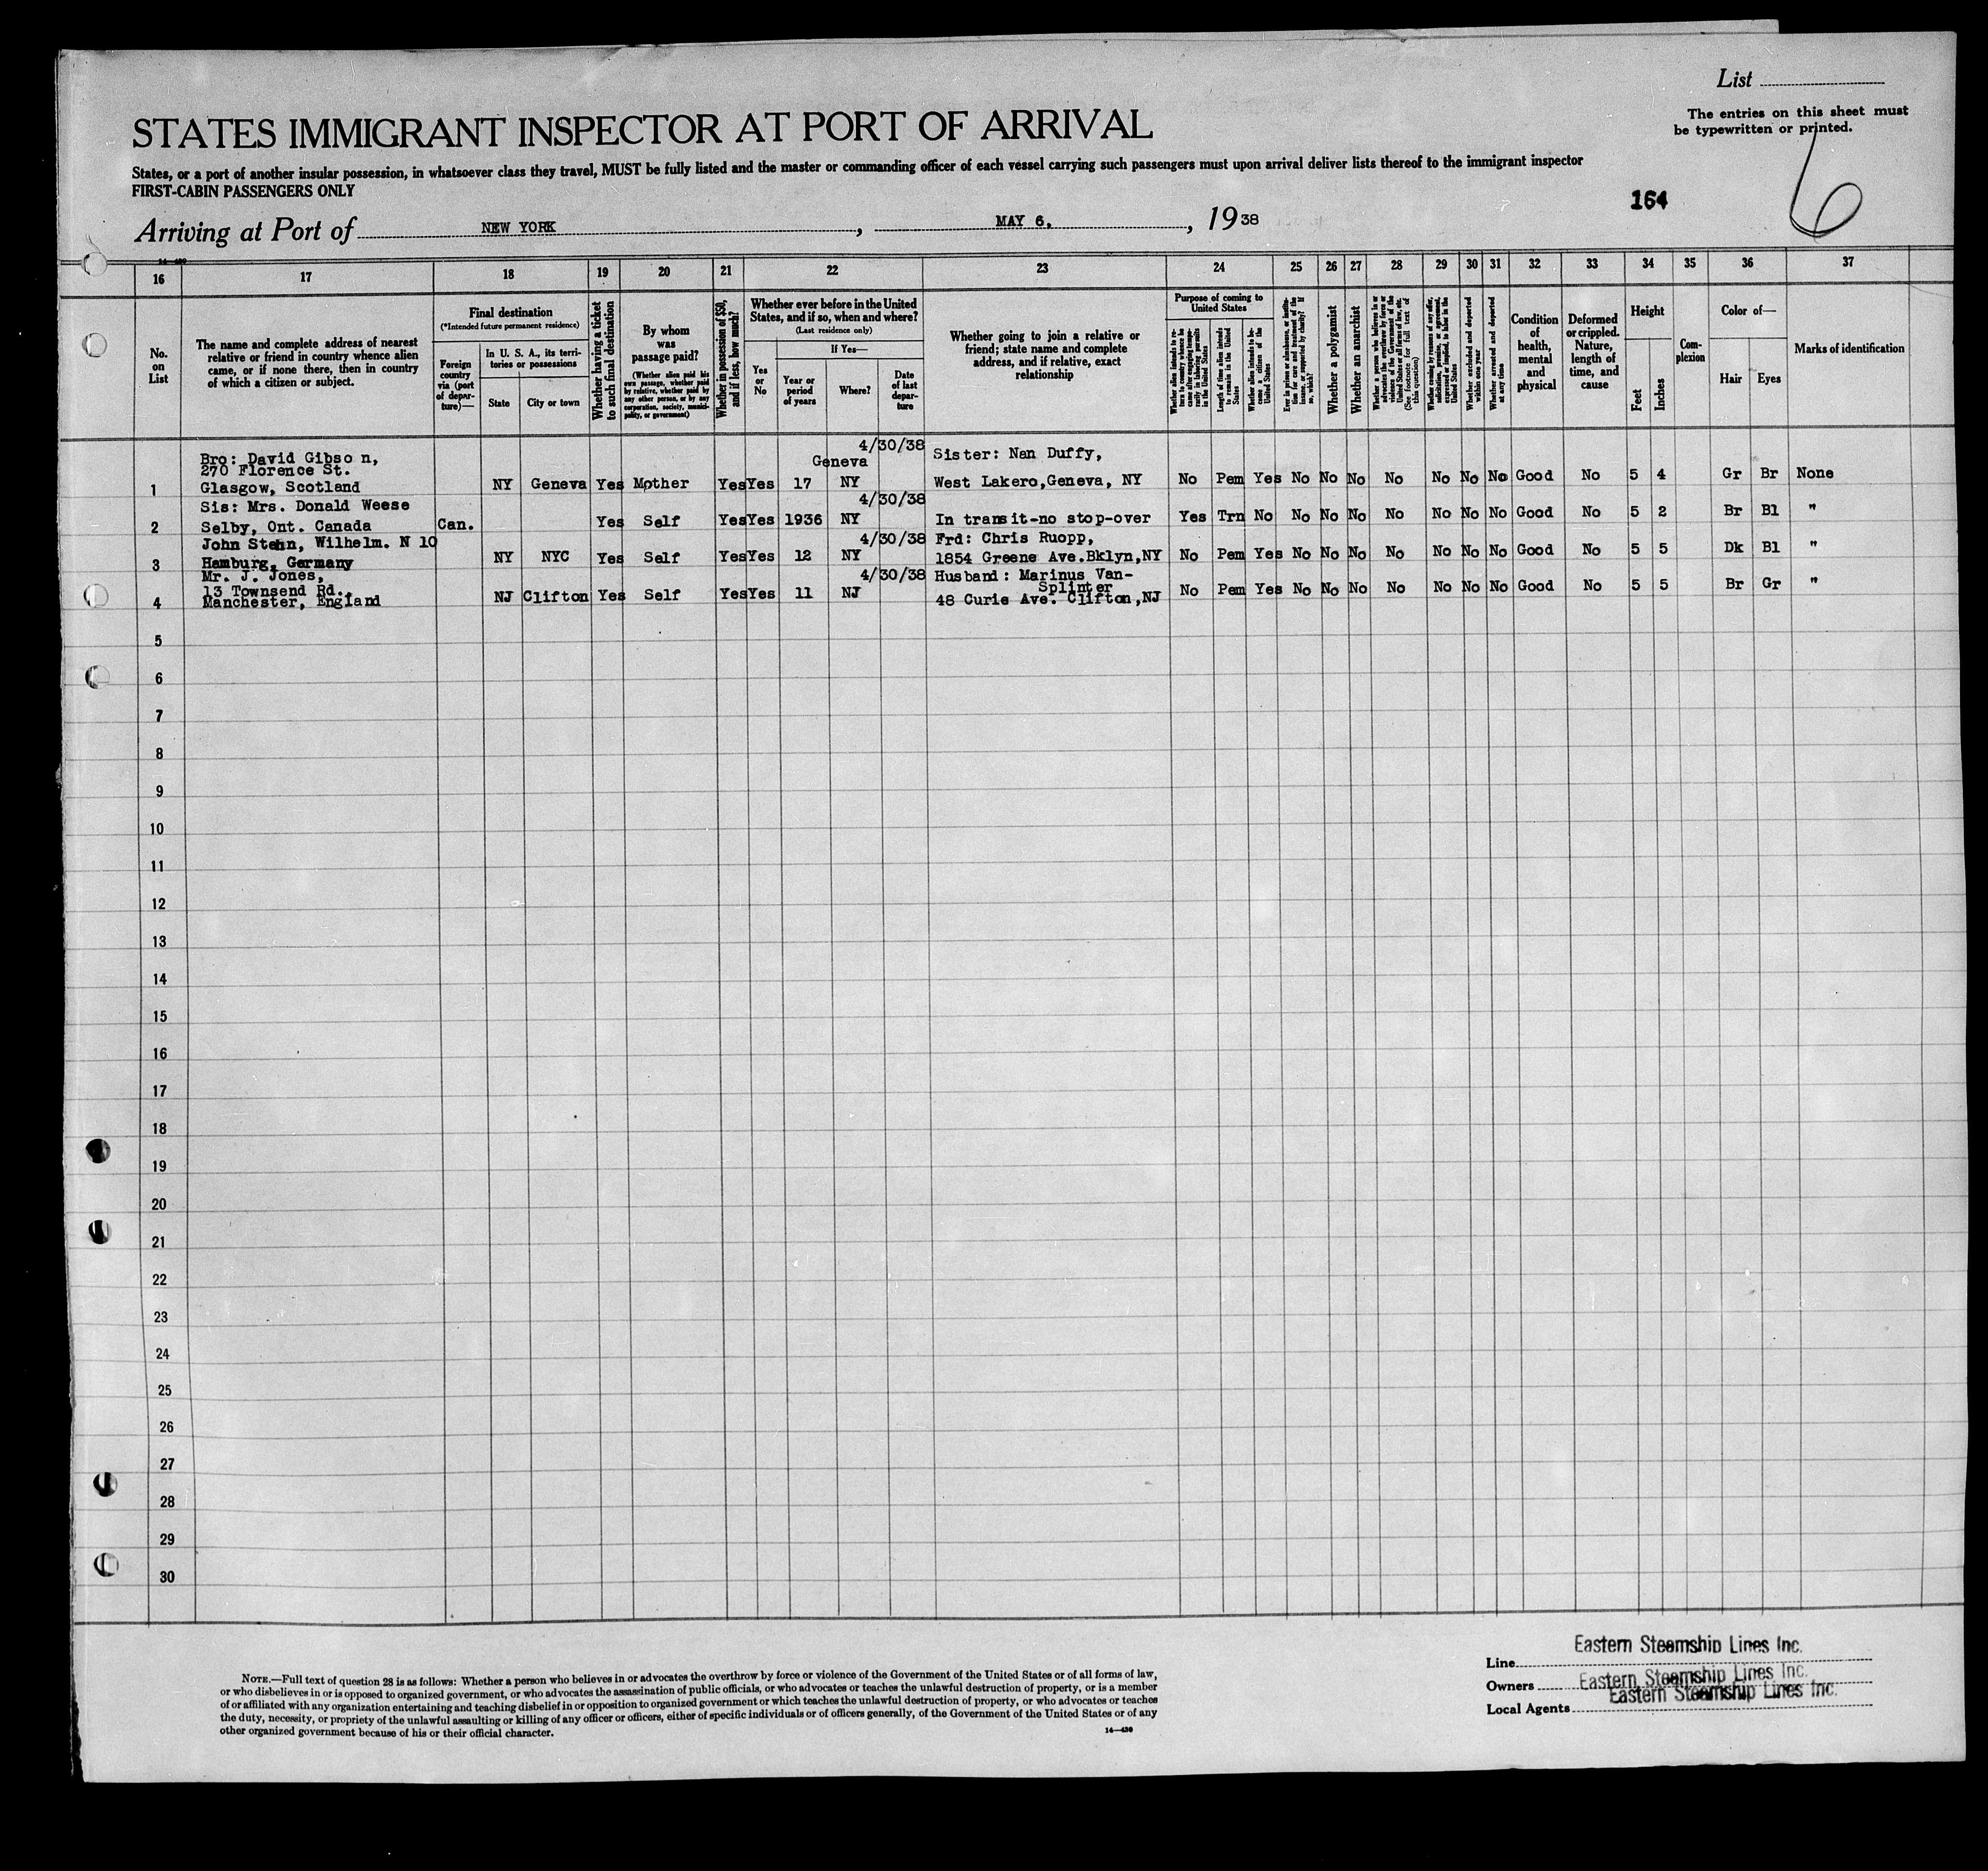 List
The entries on this sheet must
be typewritten or printed.
STATES IMMIGRANT INSPECTOR AT PORT OF ARRIVAL
States, or a port of another insular possession, in whatsoever class they travel, MUST be fully listed and the master or commanding officer of each vessel carrying such passengers must upon arrival deliver lists thereof to the immigrant inspector
FIRST-CABIN PASSENGERS ONLY
164
6
Arriving at Port of NEW YORK, MAY 6, 1938
14-430
16 17 18 19 20 21 22 23 24 25 26 27 28 29 30 31 32 33 34 35 36 37
No. on List
The name and complete address of nearest relative or friend in country whence alien came, or if none there, then in country of which a citizen or subject.
Final destination
(*Intended future permanent residence)
Foreign country via (port of departure)—
In U. S. A., its territories or possessions
State
City or town
Whether having a ticket to such final destination
By whom was passage paid?
(Whether alien paid his own passage, whether paid by relative, whether paid by any other person, or by any corporation, society, municipality, or government)
Whether in possession of $50, and if less, how much?
Whether ever before in the United States, and if so, when and where?
(Last residence only)
Yes or No
If Yes—
Year or period of years
Where?
Date of last departure
Whether going to join a relative or friend; state name and complete address, and if relative, exact relationship
Purpose of coming to United States
Whether alien intends to return to country whence he came after engaging temporarily in laboring pursuits in the United States
Length of time alien intends to remain in the United States
Whether alien intends to become a citizen of the United States
Ever in prison or almshouse, or institution for care and treatment of the insane, or supported by charity? If so, which?
Whether a polygamist
Whether an anarchist
Whether a person who believes in or advocates the overthrow by force or violence of the Government of the United States or all forms of law, etc. (See footnote for full text of this question)
Whether coming by reason of any offer, solicitation, promise, or agreement, expressed or implied, to labor in the United States
Whether excluded and deported within one year
Whether arrested and deported at any time
Condition of health, mental and physical
Deformed or crippled. Nature, length of time, and cause
Height
Feet
Inches
Complexion
Color of—
Hair
Eyes
Marks of identification
Bro: David Gibso n,
270 Florence St.
4/30/38
Geneva
Sister: Nan Duffy,
1 Glasgow, Scotland NY Geneva Yes Mother Yes Yes 17 NY West Lakero,Geneva, NY No Pem Yes No No No No No No No Good No 5 4 Gr Br None
Sis: Mrs. Donald Weese 4/30/38
2 Selby, Ont. Canada Can. Yes Self Yes Yes 1936 NY In transit-no stop-over Yes Trn No No No No No No No No Good No 5 2 Br Bl "
John Stehn, Wilhelm. N 10 4/30/38 Frd: Chris Ruopp,
3 Hamburg, Germany NY NYC Yes Self Yes Yes 12 NY 1854 Greene Ave.Bklyn,NY No Pem Yes No No No No No No No Good No 5 5 Dk Bl "
Mr. J. Jones, 4/30/38 Husband: Marinus Van-
13 Townsend Rd. Splinter
4 Manchester, England NJ Clifton Yes Self Yes Yes 11 NJ 48 Curie Ave. Clifton,NJ No Pem Yes No No No No No No No Good No 5 5 Br Gr "
5
6
7
8
9
10
11
12
13
14
15
16
17
18
19
20
21
22
23
24
25
26
27
28
29
30
NOTE.—Full text of question 28 is as follows: Whether a person who believes in or advocates the overthrow by force or violence of the Government of the United States or of all forms of law,
or who disbelieves in or is opposed to organized government, or who advocates the assassination of public officials, or who advocates or teaches the unlawful destruction of property, or is a member
of or affiliated with any organization entertaining and teaching disbelief in or opposition to organized government or which teaches the unlawful destruction of property, or who advocates or teaches
the duty, necessity, or propriety of the unlawful assaulting or killing of any officer or officers, either of specific individuals or of officers generally, of the Government of the United States or of any
other organized government because of his or their official character.
14-430
Line Eastern Steamship Lines Inc.
Owners Eastern Steamship Lines Inc.
Local Agents Eastern Steamship Lines Inc.